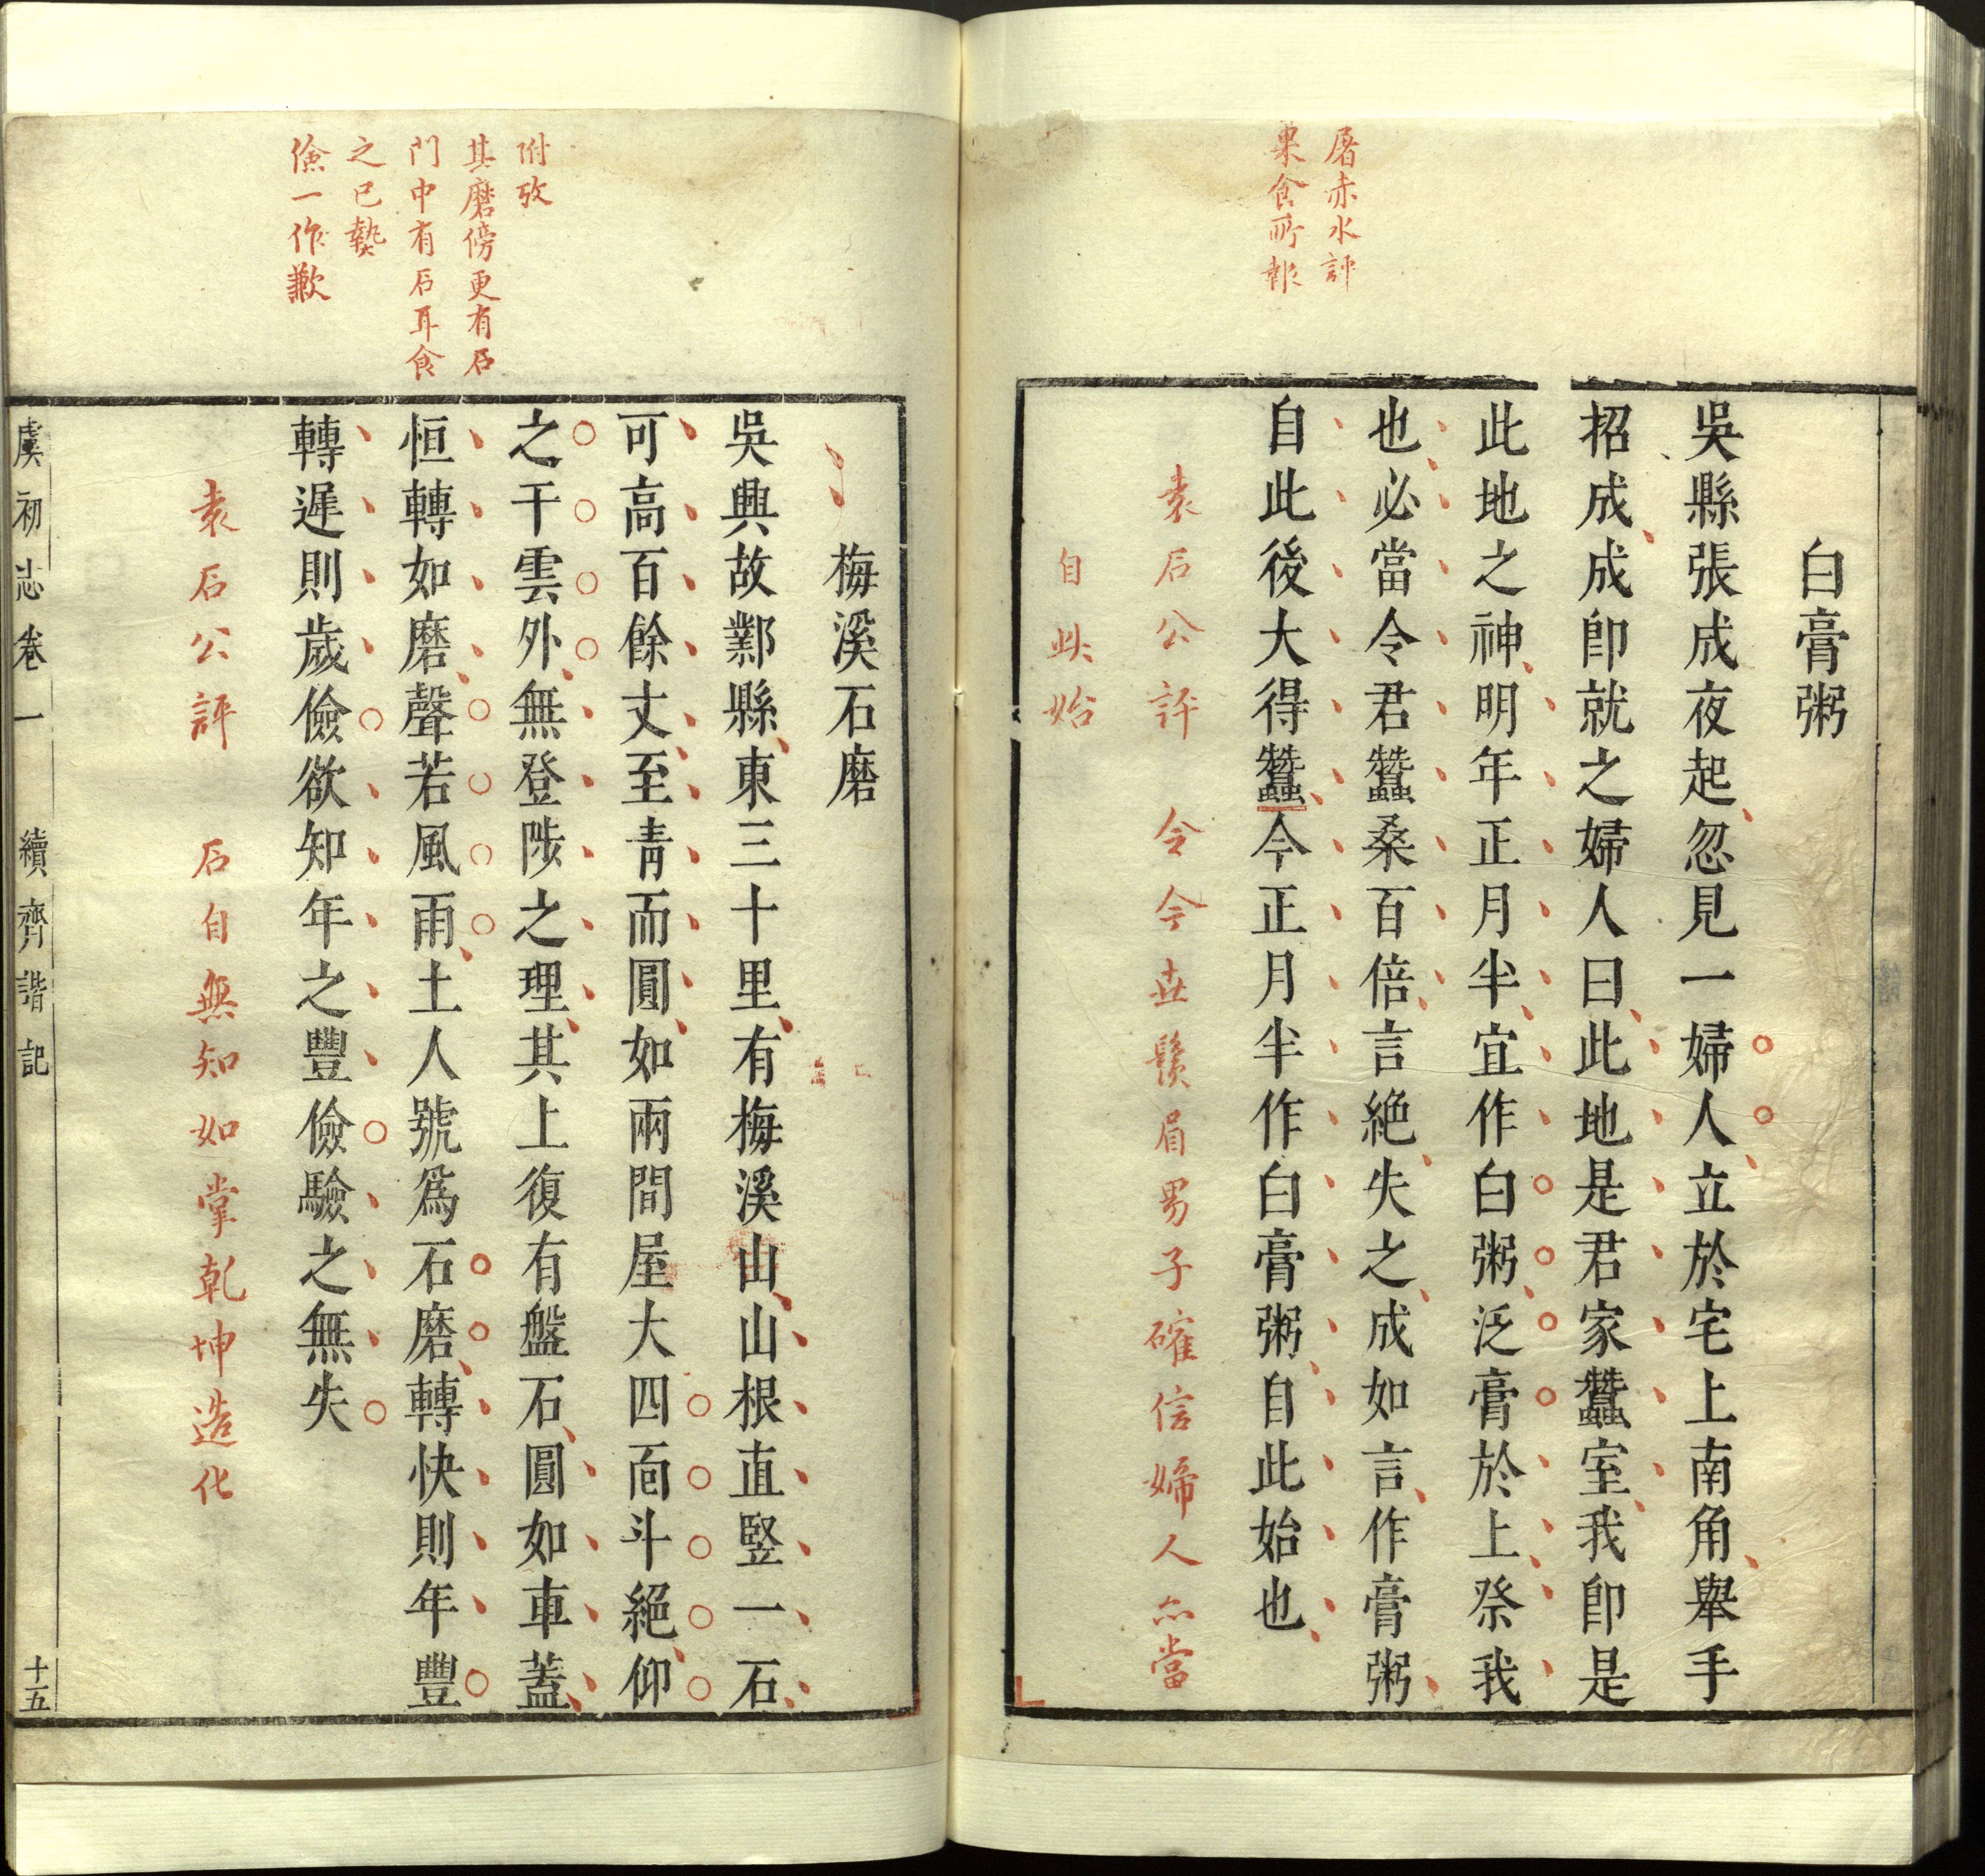 屠赤水評
果食所報
白膏粥
吳縣張成夜起忽見一婦人立於宅上南角舉手
招成成卽就之婦人曰此地是君家蠶室我卽是
此地之神明年正月半宜作白粥泛膏於上祭我
也必當令君蠶桑百倍言絶失之成如言作膏粥
自此後大得蠶今正月半作白膏粥自此始也
袁石公評 令今世鬚眉男子確信婦人亦當
自此始
附攷
其磨傍更有石
門中有石耳食
之已
儉一作歉
梅溪石磨
吳興故鄣縣東三十里有梅溪山山根直竪一石
可高百餘丈至靑而圓如兩間屋大四面斗絕仰
之干雲外無登陟之理其上復有盤石圓如車蓋
恒轉如磨聲若風雨土人號爲石磨轉快則年豐
轉遲則歲儉欲知年之豐儉驗之無失
袁石公評 石自無知如掌乾坤造化
虞初志卷一 續齊諧記 十五